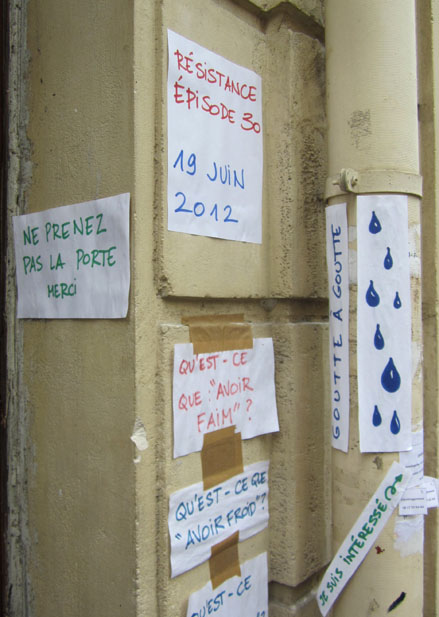 RÉSISTANCE
ÉPISODE 30
19 JUIN
2012
NE PRENEZ
PAS LA PORTE
MERCI
QU'EST-CE
QUE "AVOIR
FAIM"?
QU'EST-CE QUE
"AVOIR FROID"?
QU'EST-CE
GOUTTE À GOUTTE
JE SUIS INTÉRESSÉ